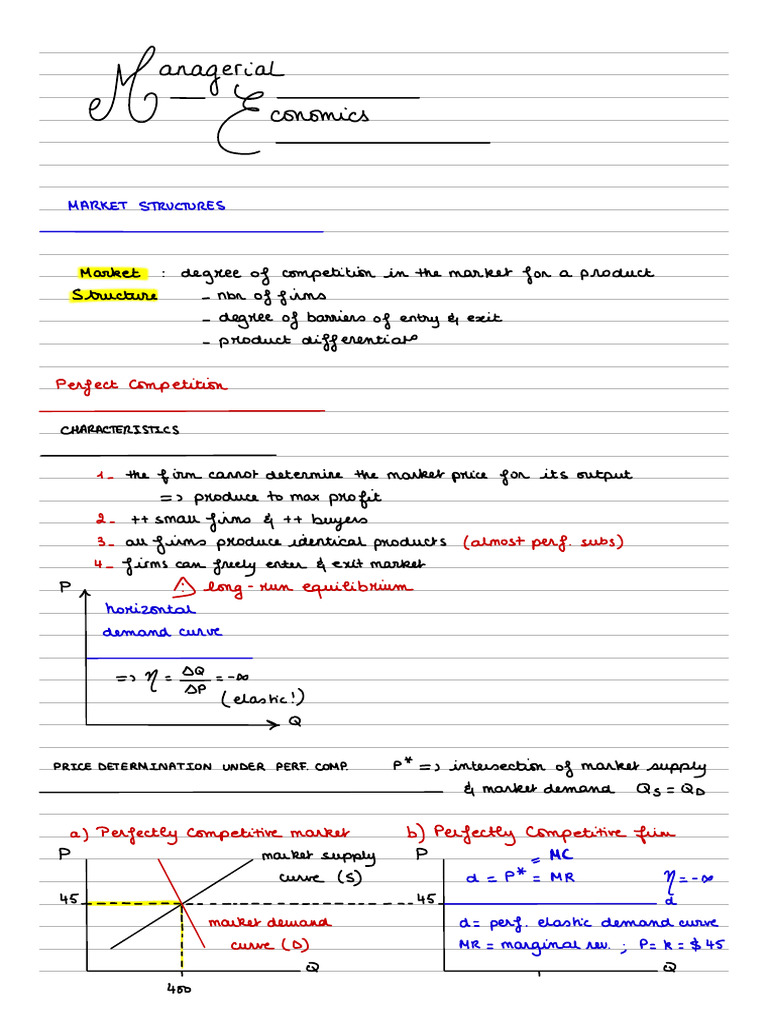 Managerial
Economics
MARKET STRUCTURES
Market : degree of competition in the market for a product
Structure - nbr of firms
- degree of barriers of entry & exit
- product differential°
Perfect Competition
CHARACTERISTICS
1- the firm cannot determine the market price for its output
=> produce to max profit
2- ++ small firms & ++ buyers
3- all firms produce identical products (almost perf. subs)
4- firms can freely enter & exit market
P ⚠ long-run equilibrium
horizontal
demand curve
=> η = ΔQ/ΔP = -∞
(elastic!)
Q
PRICE DETERMINATION UNDER PERF. COMP. P* => intersection of market supply
& market demand Qs = QD
a) Perfectly Competitive market
P
market supply
curve (S)
45
market demand
curve (D)
Q
400
b) Perfectly Competitive firm
P
= MC
d = P* = MR
η = -∞
45
d
d = perf. elastic demand curve
MR = marginal rev. ; P = k = $45
Q